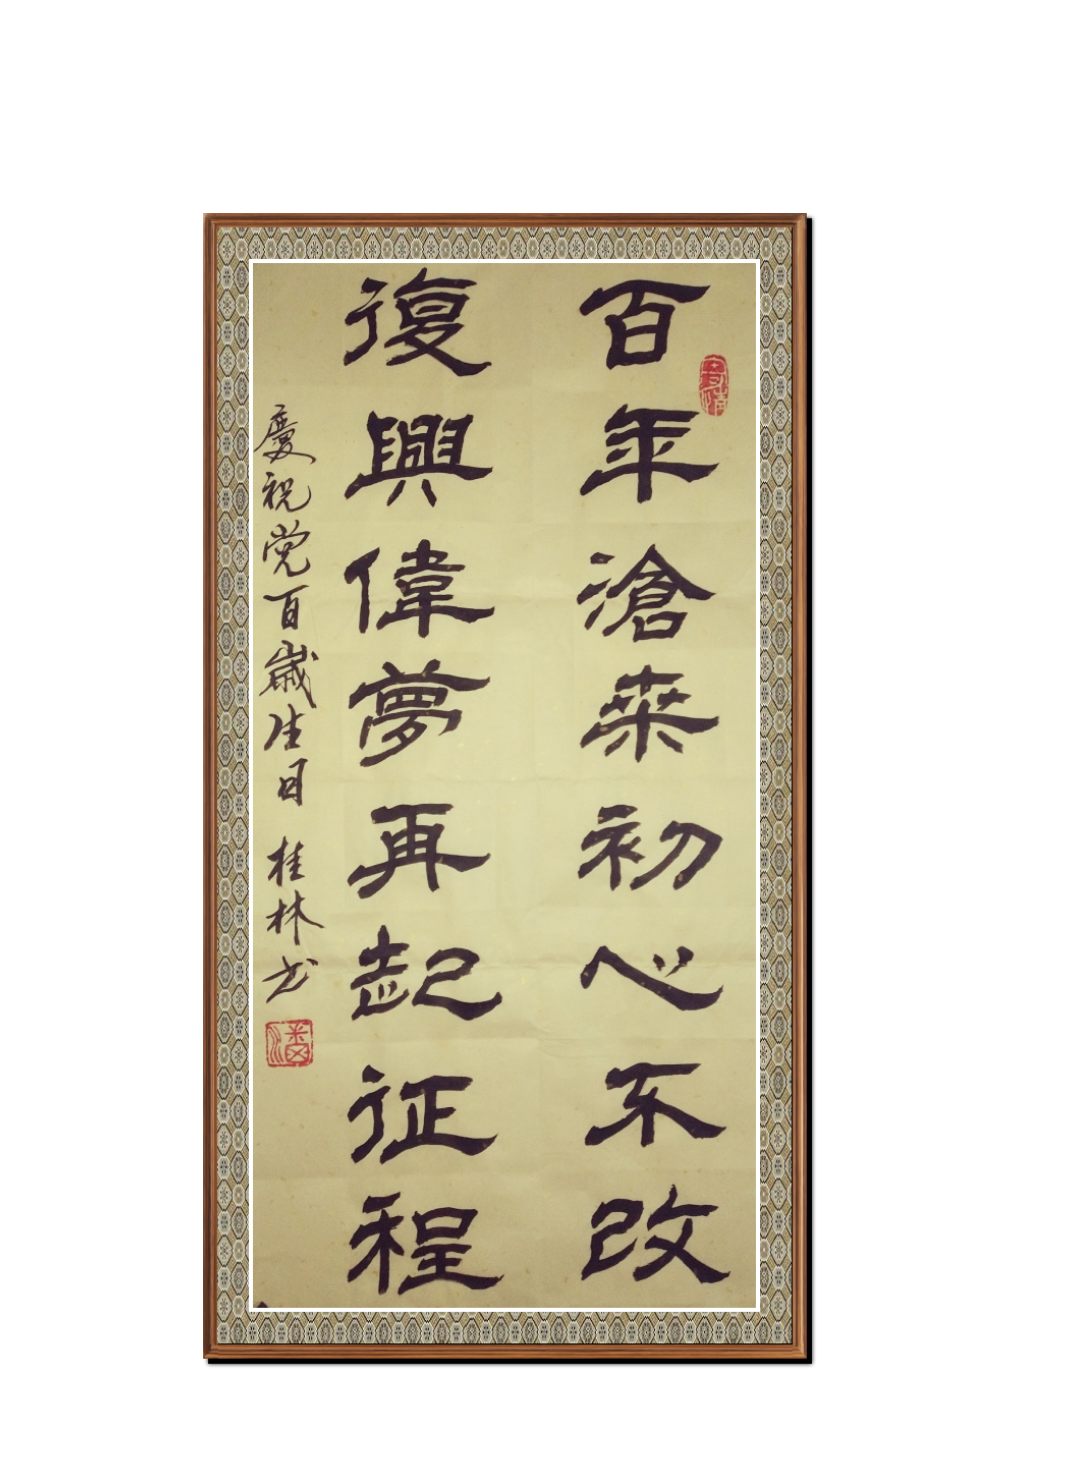 百年滄来初心不改
復興偉夢再起征程
慶祝党百歲生日 桂林书
潘